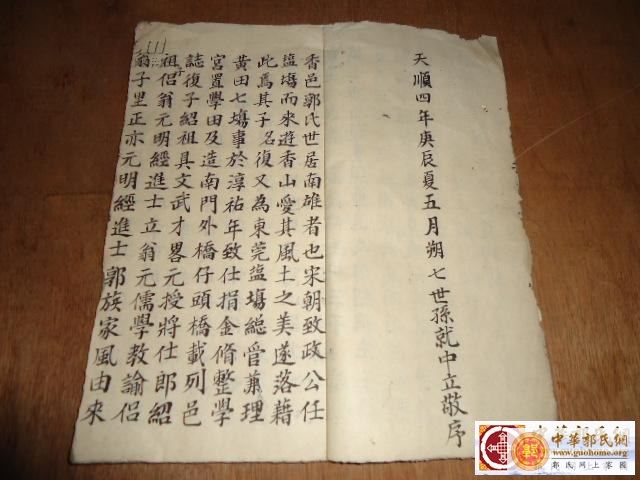 天順四年庚辰夏五月朔七世孫就中立敬序
香邑郭氏世居南雄者也宋朝致政公任
塩場而来遊香山愛其風土之美遂落藉
此焉其子名復又為東莞塩場総管蕭理
黄田七塲事於淳祐年致仕捐金脩整學
宮置學田及造南門外橋仔頭橋載列邑
誌復子紹祖具文武才畧元授將仕郎紹
祖侶翁元明經進士立翁元儒學教諭侶
翁子里正亦元明經進士郭族家風由来
中華郭氏網
www.guohome.org
郭氏网上家园